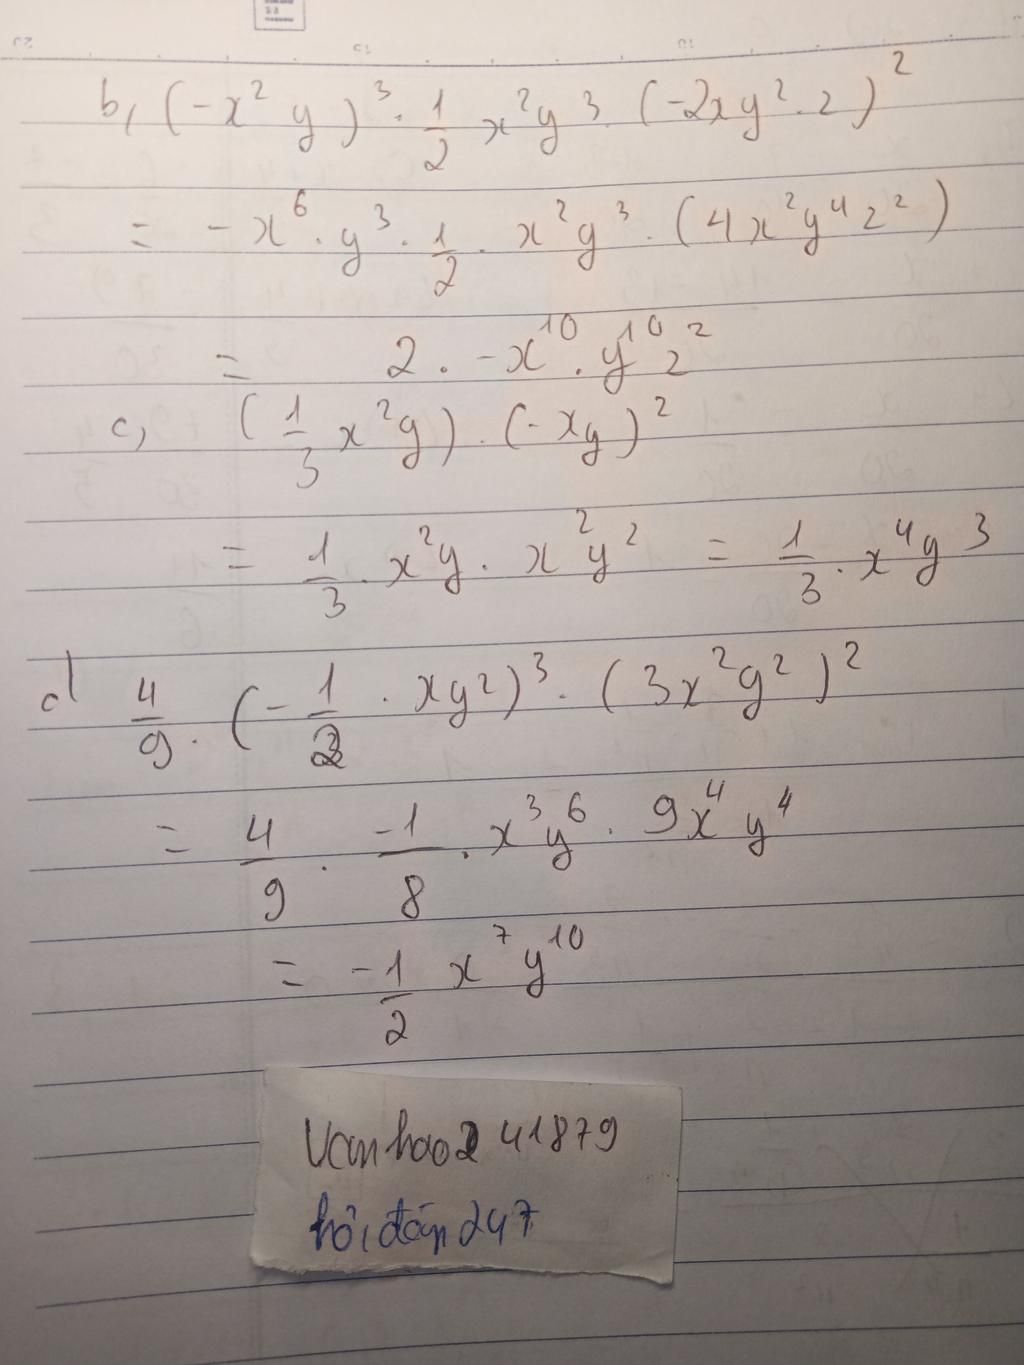 b, (-x² y)³ · 1/2 x²y³ · (-2xy² · z)²
= -x⁶ · y³ · 1/2 · x²y³ · (4x²y⁴z²)
= 2 · -x¹⁰ · y¹⁰ z²
c, (1/3 x²y) · (-xy)²
= 1/3 · x²y · x²y² = 1/3 · x⁴y³
d 4/9 · (-1/2 · xy²)³ · (3x²y²)²
= 4/9 · -1/8 · x³y⁶ · 9x⁴y⁴
= -1/2 x⁷y¹⁰
Vanhao241879
hỏi đáp 247